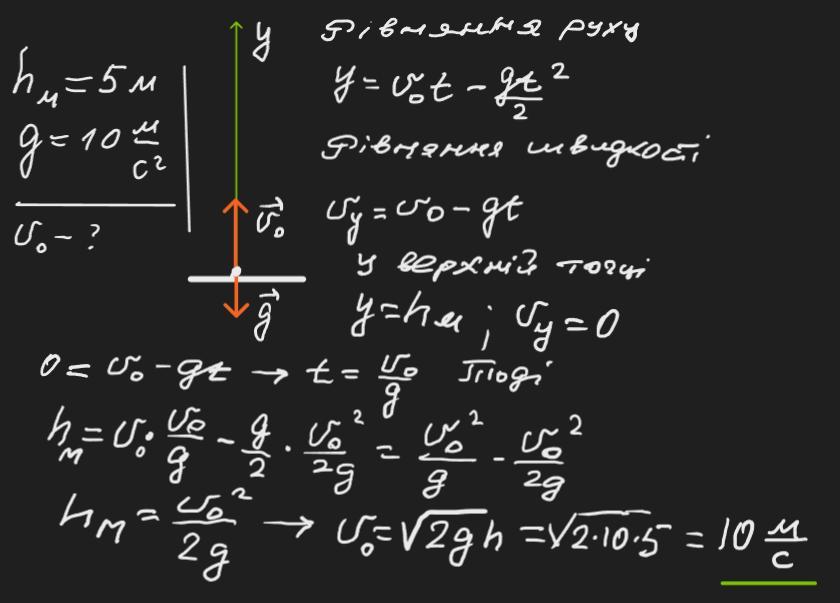 hм = 5 м
g = 10 м/с²
υ₀ - ?
y
υ⃗₀
g⃗
Рівняння руху
y = υ₀t - gt²/2
Рівняння швидкості
υy = υ₀ - gt
У верхній точці
y = hм ; υy = 0
0 = υ₀ - gt → t = υ₀/g Тоді
hм = υ₀ · υ₀/g - g/2 · υ₀²/2g = υ₀²/g - υ₀²/2g
hм = υ₀²/2g → υ₀ = √2gh = √2·10·5 = 10 м/с